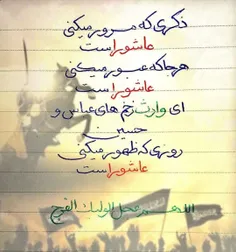 ذکری که مرور میکنی
عاشورا است
هرجا که عبور میکنی
عاشورا است
ای وارث زخم های عباس و
حسین
روزی که ظهور میکنی
عاشورا است
اللهم عجل لولیک الفرج